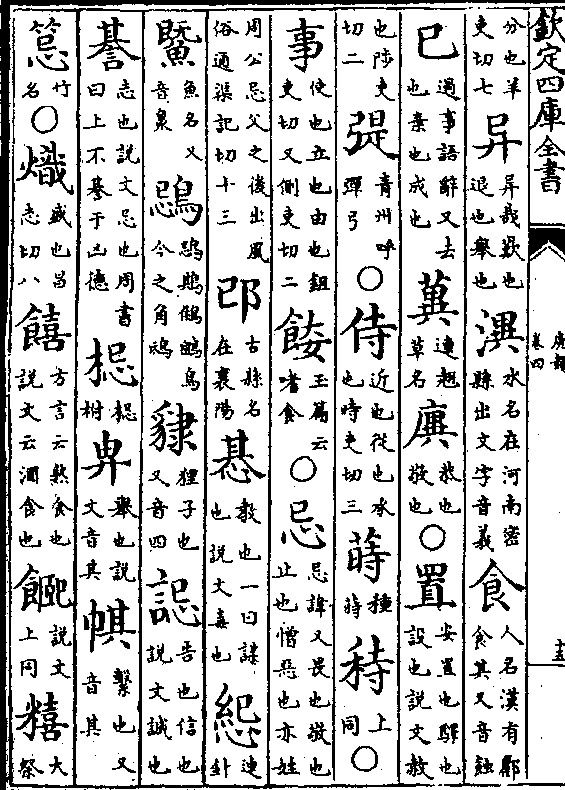 欽定四庫全書
廣韻
卷四
十五
分也羊吏切七 异 异哉歎也退也舉也 潩 水名在河南密縣出文字音義 食 人名漢有酈食其又音蝕
已 過事語辭又去也棄也成也 䔬 連翹草名 廙 恭也敬也 ○ 置 安置也驛也設也說文赦
也陟吏切二 青州呼彈弓 ○ 侍 近也從也承也時吏切三 蒔 種蒔 秲 上同 ○
事 使也立也由也鉏吏切又側吏切二 玉篇云嗜食 ○ 忌 忌諱又畏也敬也止也憎惡也亦姓
周公忌父之後出風俗通渠記切十三 邔 古縣名在襄陽 惎 教也一曰謀也說文毒也 䋟 連針
鱀 魚名又音臮 鵋 鵋鶀鵂鶹鳥今之角鴟 狸子也又音四 誋 告也信也說文誡也
諅 志也說文忌也周書曰上不諅于凶德 梞 梞柎 𢍁 舉也說文音其 帺 繫也又音其
竹名 ○ 熾 盛也昌志切八 饎 方言云熟食也說文云酒食也 說文上同 糦 大祭